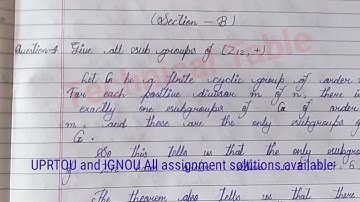 (Section - B)
Question-4 Give all sub groups of (Z12, +)
Let G be a finite cyclic group of order n
For each positive divisor m of n, there is
exactly one subgroups of G of order
m, and these are the only subgroups of
G.
So this tells us that the only subgroups
UPRTOU and IGNOU All assignment solutions available
The theorem also tells us that there